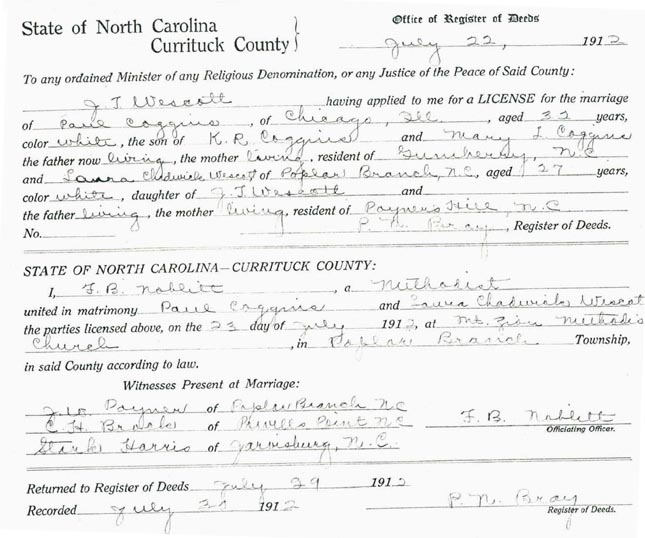 State of North Carolina
Currituck County
Office of Register of Deeds
July 22, 1912
To any ordained Minister of any Religious Denomination, or any Justice of the Peace of Said County:
J T Wescott having applied to me for a LICENSE for the marriage
of Paul Coggins, of Chicago, Ill, aged 32 years,
color white, the son of K. R. Coggins and Mary L Coggins
the father now living, the mother living, resident of Gumberry, N C
and Laura Chadwick Wescot of Poplar Branch, N.C, aged 27 years,
color white, daughter of J T Wescott and
the father living, the mother living, resident of Payners Hill, N.C
No. P. N. Bray, Register of Deeds.
STATE OF NORTH CAROLINA—CURRITUCK COUNTY:
I, F. B. Noblitt, a Methodist
united in matrimony Paul Coggins and Laura Chadwick Wescot
the parties licensed above, on the 23 day of July 1912, at Mt. Zion Methodis
Church, in Poplar Branch Township,
in said County according to law.
Witnesses Present at Marriage:
Payner of Poplar Branch NC
C. H. of Point NC
F. B. Noblitt
Officiating Officer.
Harris of Jarvisburg, N.C.
Returned to Register of Deeds July 29 1912
Recorded July 1912
P. N. Bray
Register of Deeds.